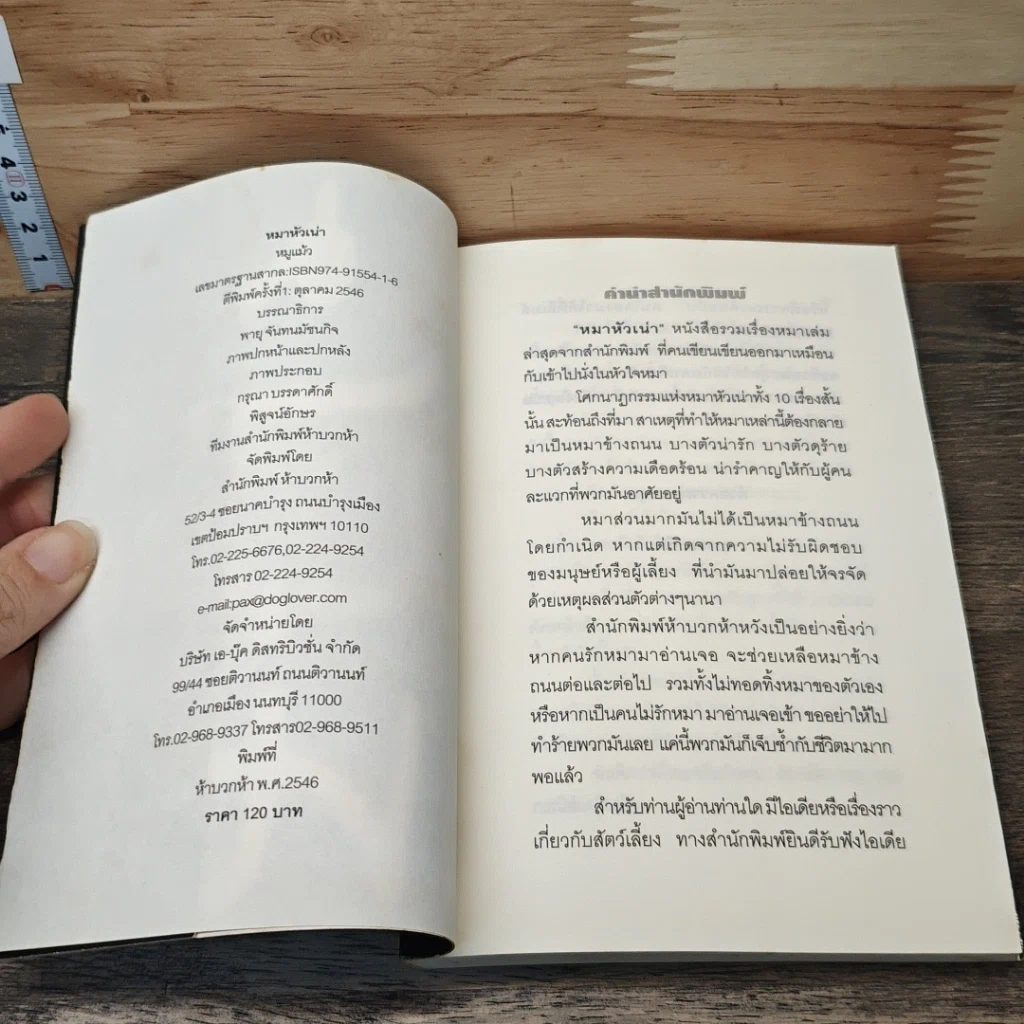 หมาหัวเน่า
หมูแม้ว
เลขมาตรฐานสากล:ISBN974-91554-1-6
ตีพิมพ์ครั้งที่1: ตุลาคม 2546
บรรณาธิการ
พายุ จันทนมัชนกิจ
ภาพปกหน้าและปกหลัง
ภาพประกอบ
กรุณา บรรดาศักดิ์
พิสูจน์อักษร
ทีมงานสำนักพิมพ์ห้าบวกห้า
จัดพิมพ์โดย
สำนักพิมพ์ ห้าบวกห้า
52/3-4 ซอยนาคบำรุง ถนนบำรุงเมือง
เขตป้อมปราบฯ กรุงเทพฯ 10110
โทร.02-225-6676,02-224-9254
โทรสาร 02-224-9254
e-mail:pax@doglover.com
จัดจำหน่ายโดย
บริษัท เอ-บุ๊ค ดิสทริบิวชั่น จำกัด
99/44 ซอยติวานนท์ ถนนติวานนท์
อำเภอเมือง นนทบุรี 11000
โทร.02-968-9337 โทรสาร02-968-9511
พิมพ์ที่
ห้าบวกห้า พ.ศ.2546
ราคา 120 บาท
คำนำสำนักพิมพ์
"หมาหัวเน่า" หนังสือรวมเรื่องหมาเล่ม
ล่าสุดจากสำนักพิมพ์ ที่คนเขียนเขียนออกมาเหมือน
กับเข้าไปนั่งในหัวใจหมา
โศกนาฏกรรมแห่งหมาหัวเน่าทั้ง 10 เรื่องสั้น
นั้น สะท้อนถึงที่มา สาเหตุที่ทำให้หมาเหล่านี้ต้องกลาย
มาเป็นหมาข้างถนน บางตัวน่ารัก บางตัวดุร้าย
บางตัวสร้างความเดือดร้อน น่ารำคาญให้กับผู้คน
ละแวกที่พวกมันอาศัยอยู่
หมาส่วนมากมันไม่ได้เป็นหมาข้างถนน
โดยกำเนิด หากแต่เกิดจากความไม่รับผิดชอบ
ของมนุษย์หรือผู้เลี้ยง ที่นำมันมาปล่อยให้จรจัด
ด้วยเหตุผลส่วนตัวต่างๆนานา
สำนักพิมพ์ห้าบวกห้าหวังเป็นอย่างยิ่งว่า
หากคนรักหมามาอ่านเจอ จะช่วยเหลือหมาข้าง
ถนนต่อและต่อไป รวมทั้งไม่ทอดทิ้งหมาของตัวเอง
หรือหากเป็นคนไม่รักหมา มาอ่านเจอเข้า ขออย่าให้ไป
ทำร้ายพวกมันเลย แค่นี้พวกมันก็เจ็บช้ำกับชีวิตมามาก
พอแล้ว
สำหรับท่านผู้อ่านท่านใด มีไอเดียหรือเรื่องราว
เกี่ยวกับสัตว์เลี้ยง ทางสำนักพิมพ์ยินดีรับฟังไอเดีย
4
3
2
1